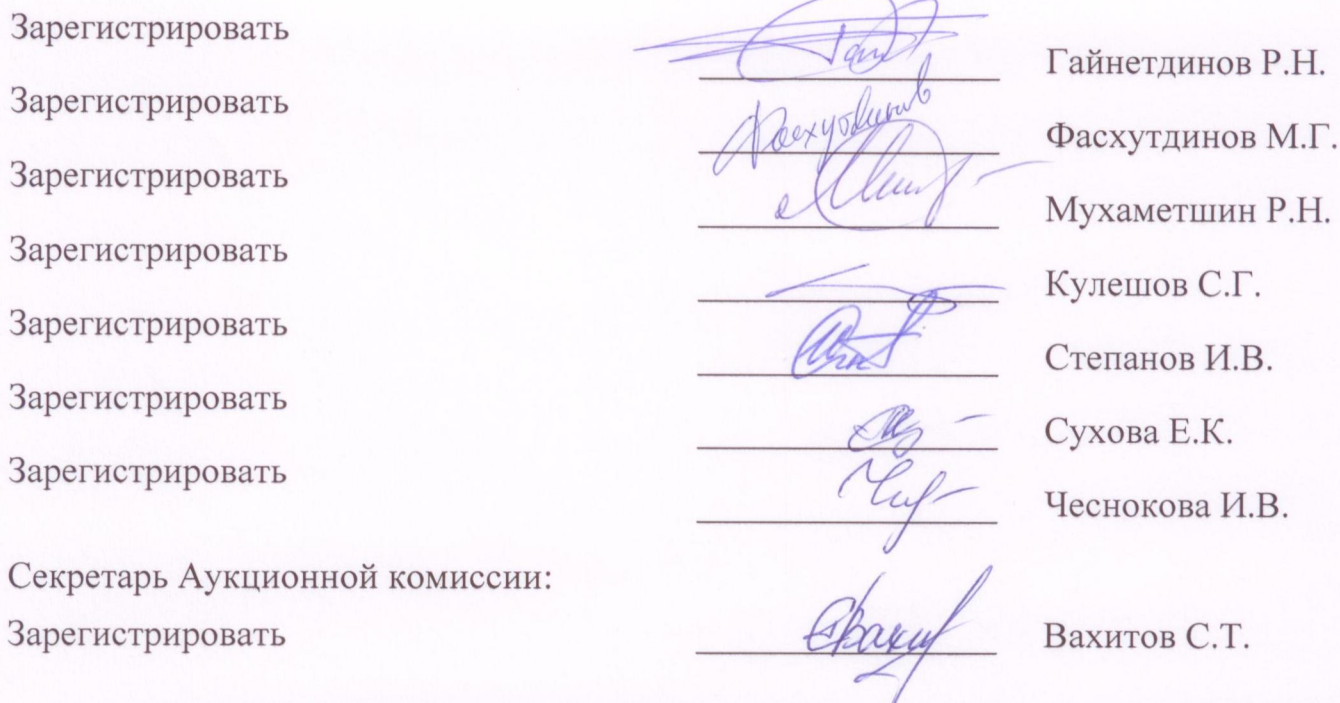 Зарегистрировать Гайнетдинов Р.Н.
Зарегистрировать Фасхутдинов Фасхутдинов М.Г.
Зарегистрировать Мухаметшин Р.Н.
Зарегистрировать Кулешов С.Г.
Зарегистрировать Степанов И.В.
Зарегистрировать Сухова Е.К.
Зарегистрировать Чеснокова И.В.
Секретарь Аукционной комиссии:
Зарегистрировать Вахитов С.Т.